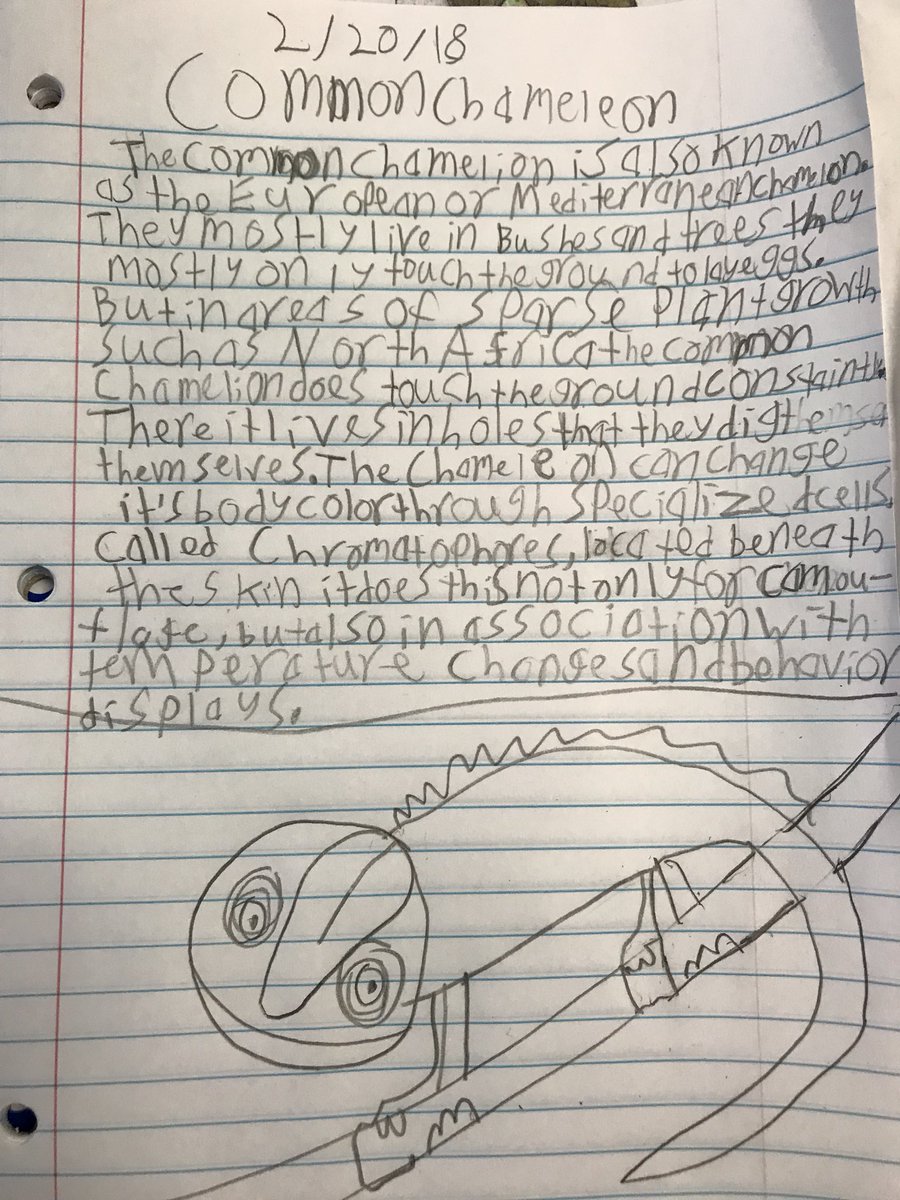 2/20/18
Common Chameleon
The common chamelion is also known
as the European or Mediterranean chamelion.
They mostly live in Bushes and trees they
mostly only touch the ground to lay eggs.
But in areas of sparse plant growth
such as North Africa the common
Chamelion does touch the ground
There it lives in holes that they dig themse
themselves. The Chameleon can change
it's body color through specialized cells,
called Chromatophores, located beneath
the skin it does this not only for camou-
flage, but also in association with
temperature changes and behavior
displays.